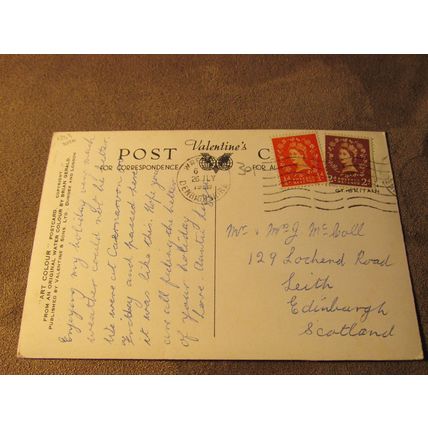 POST
Valentine's
CARD
FOR CORRESPONDENCE
"ART COLOUR" POSTCARD COPYRIGHT
FROM AN ORIGINAL WATER COLOUR BY BRIAN GERALD
PUBLISHED BY VALENTINE & SONS, LTD. DUNDEE AND LONDON
Enjoying my holiday very much
weather could not be better
We were at Caernarvon
Friday and passed here
it was like this. Hope you
are all feeling the better
of your holiday
Love Auntie
Mr & Mrs J McColl
129 Lochend Road
Leith
Edinburgh
Scotland